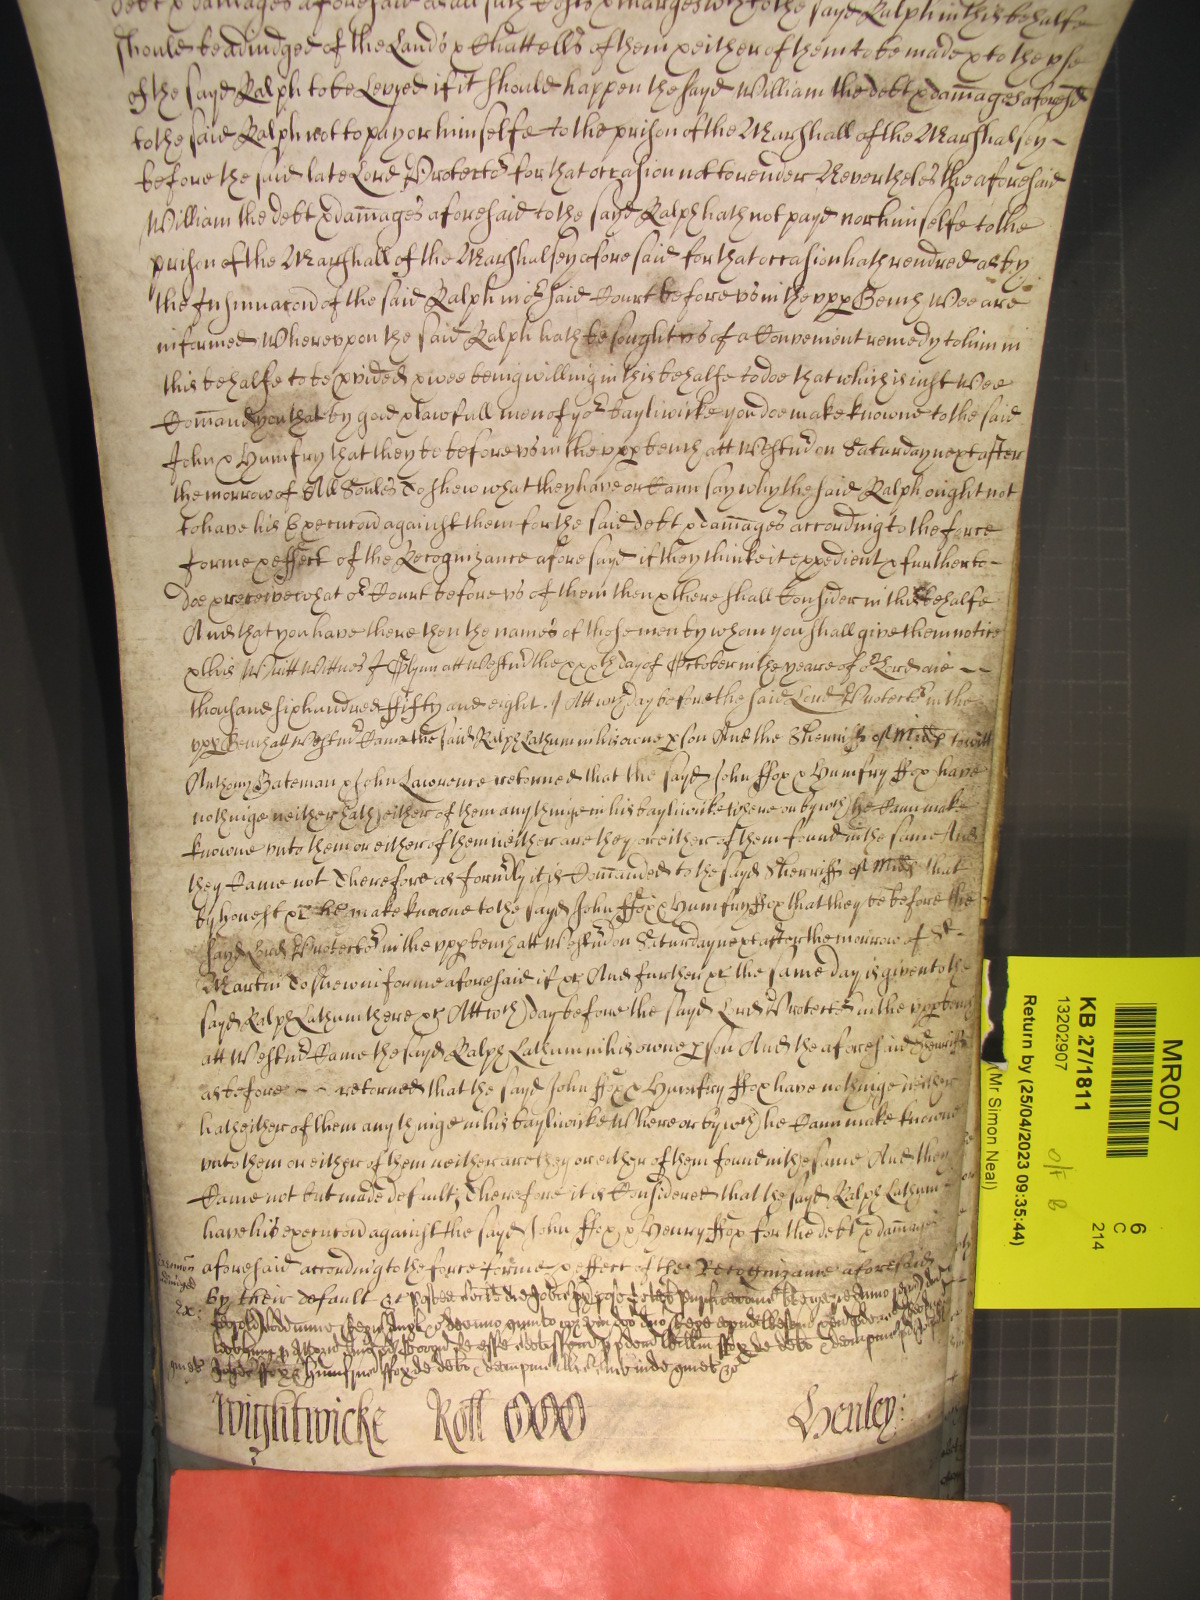 debt & damages aforesaid as all such Costs & Charges wch to the sayd Ralph in this behalfe
should be adiudged of the Lands & Chattells of them & either of them to be made & to the vse
of the sayd Ralph to be Levyed if it should happen the sayd William the debt & damages aforesd
to the said Ralph not to pay or himselfe to the prison of the Marshall of the Marshalsey
before the said late Lord Protector for that occasion not to render Neverthelesse the aforesaid
William the debt & damages aforesaid to the sayd Ralph hath not payd nor himselfe to the
prison of the Marshall of the Marshalsey aforesaid for that occasion hath rendred as by
the Insinuacon of the said Ralph in or said Court before vs in the vpp Bench Wee are
informed Wherevpon the said Ralph hath besought vs of a Convenient remedy to him in
this behalfe to be pvided & wee being willing in this behalfe to doe that which is iust Wee
Comand you that by good & lawfull men of yor bayliwicke you doe make knowne to the said
John & Humfry that they be before vs in the vpp bench att Westmr on Saturday next after
the morrow of All Soules To shew what they have or Cann say why the said Ralph ought not
to have his Execucon against them for the said debt & damages according to the force
forme & effect of the Recognizance aforesayd if they thinke it expedient & further to
doe & receive what or Court before vs of them then & there shall Consider in this behalfe
And that you have there then the names of those men by whom you shall give them notice
& this Writt Wittnes J Glynn att Westmr the xxxth day of October in the yeare of or Lord one
thousand six hundred fifty and eight. / Att wch day before the said Lord Protector in the
vpp Bench att Westmr Came the said Ralph Lathum in his owne pson And the Sherriffs of Midd to witt
Anthony Bateman & John Lawrence returned that the sayd John ffox & Humfry ffox have
nothinge neither hath either of them any thinge in his bayliwicke where or by wch he Cann make
knowne vnto them or either of them neither are they or either of them found in the same And
they Came not Therefore as formrly it is Comanded to the sayd Sherriffs of Midd that
by honest &c he make knowne to the sayd John ffox & Humfry ffox that they be before the
sayd Lord Protector in the vpp bench att Westmr on Saturday next after the morrow of St
Martin To shew in forme aforesaid if &c And further &c the same day is given to the
sayd Ralph Lathum there &c Att wch day before the sayd Lord Protector in the vpp bench
att Westmr Came the sayd Ralph Lathum in his owne pson And the aforesaid Sherriffs
as before returned that the sayd John ffox & Humfry ffox have nothinge neither
hath either of them any thinge in his bayliwicke Where or by wch he Cann make knowne
vnto them or either of them neither are they or either of them found in the same And they
Came not but made default; Therefore it is Considered that the sayd Ralph Lathum
have his execucon against the sayd John ffox & Henry ffox for the debt & damages
aforesaid according to the force forme & effect of the Recognizance aforesaid
By their default
Ex:
Wightwicke Roll Henley:
MR007
KB 27/1811
13202907
Return by (25/04/2023 09:35:44)
(Mr Simon Neal)
6
C
214